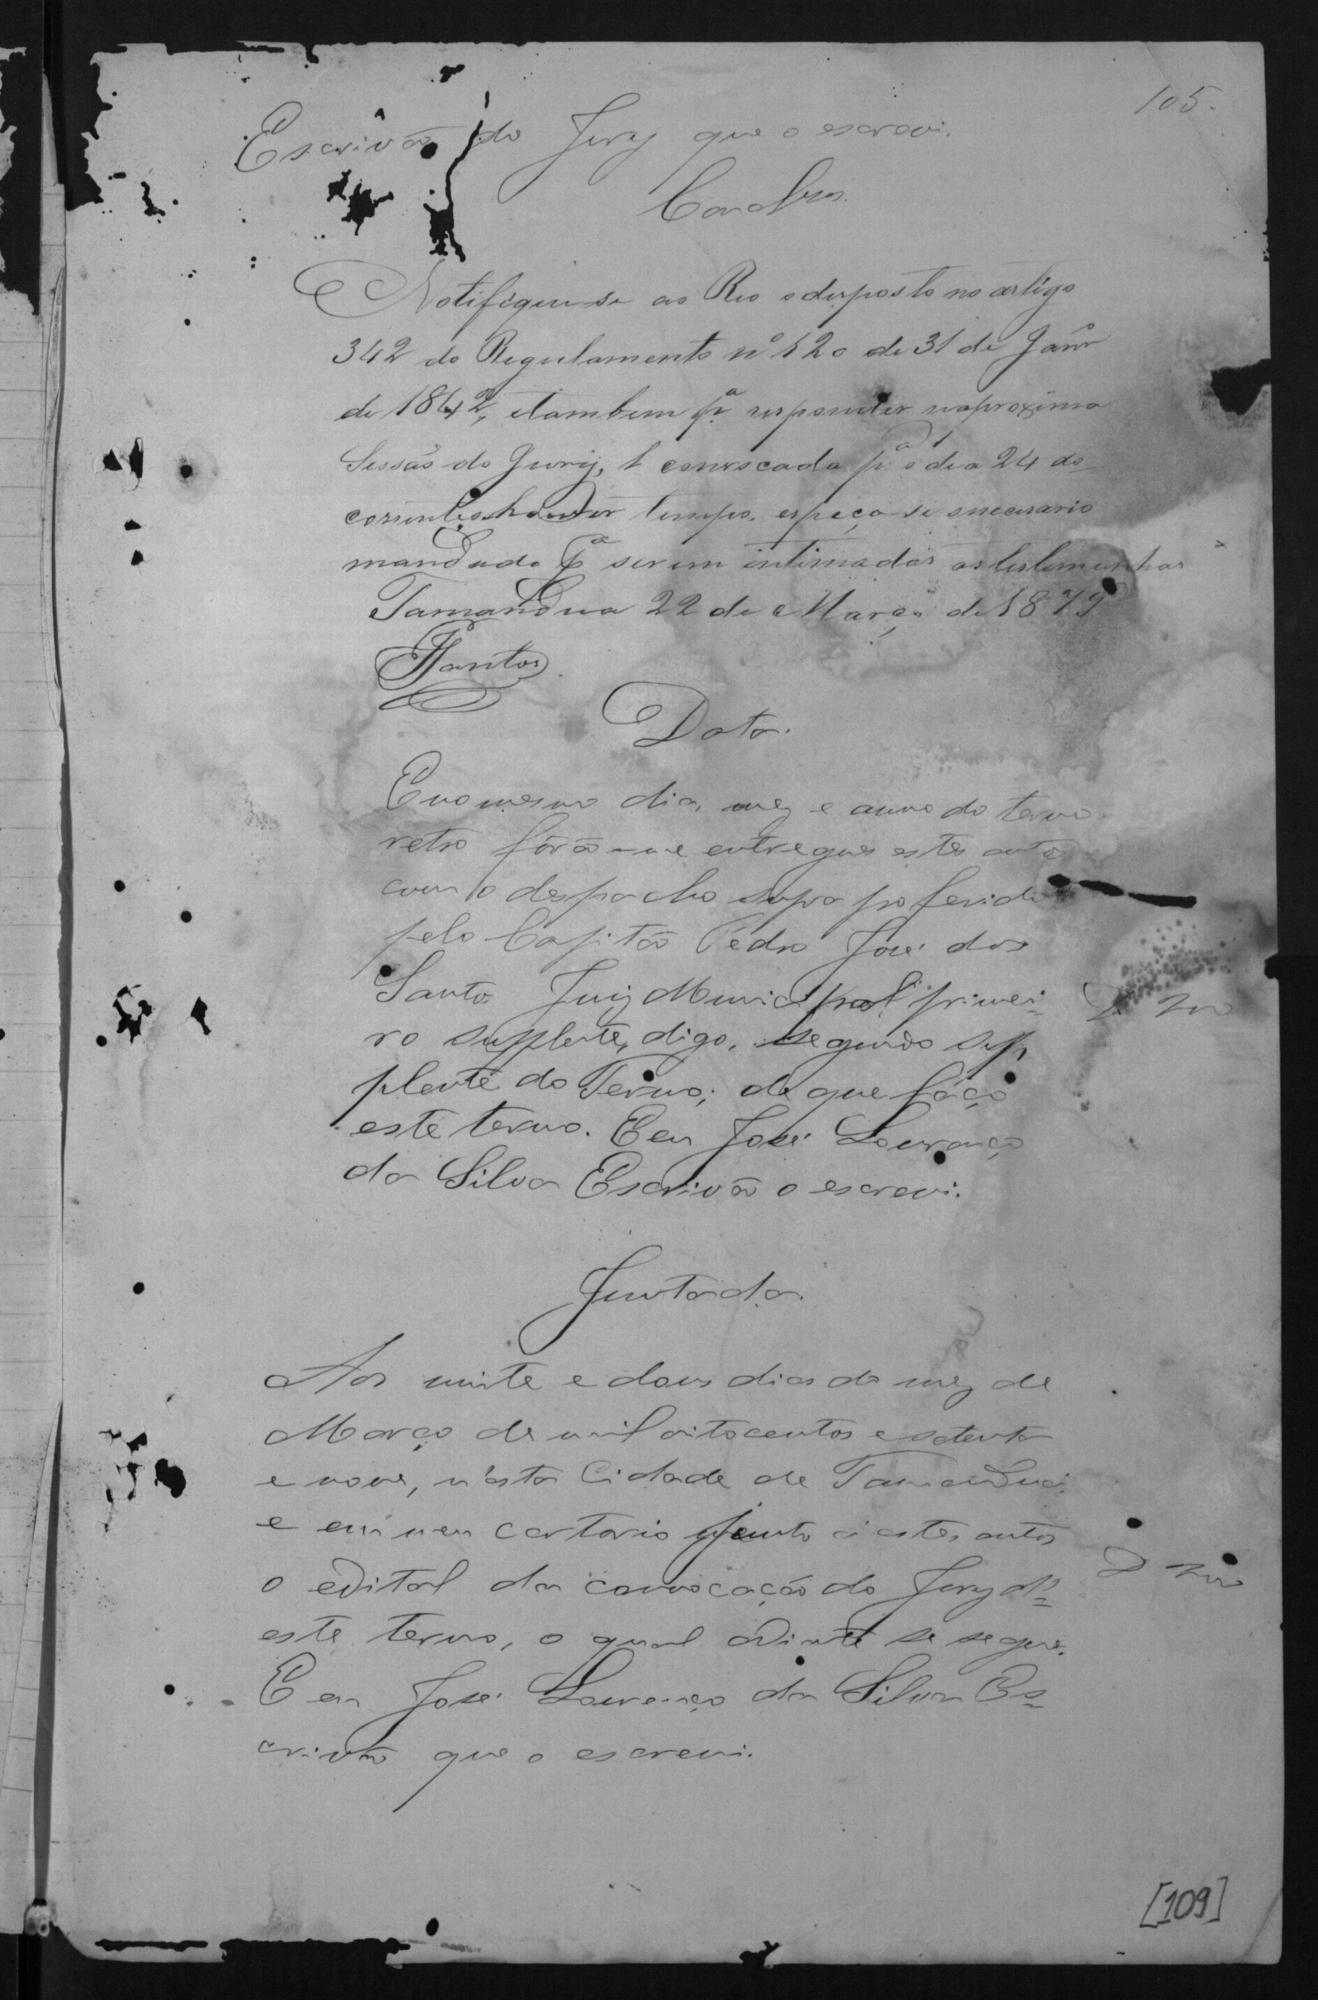 105.
Escrivão do Jury que o escrevi.
Notifique-se ao Reo o disposto no artigo
342 do Regulamento nº 120 de 31 de Janrº
de 1842, etambem pª responder naproxima
Sessão do Jury, convocada pª o dia 24 do
corrente havendo tempo. espeça-se onecesario
mandado pª serem intimadas astestemunhas
Tamandua 22 de Março de 1879
Santos
Data.
E nomesmo dia, mez e anno do termo
retro fôrão-me entregues estes autos
com o despacho supra proferido
pelo Capitão Pedro José dos
Santos Juiz Municipal primei-
ro supplente, digo, segundo sup
plente do Termo; do que faço
este termo. Eeu José Lourenço
da Silva Escrivão o escrevi.
Juntada.
Aos vinte e dous dias do mez de
Março de mil oitocentos e setenta
e nove, n'esta Cidade de Tamanduá
e em meu cartorio junto á estes autos
o edital da convocação do Jury d'-
este termo, o qual adiante se segue.
E eu José Lourenço da Silva Es-
crivão que o escrevi.
[109]